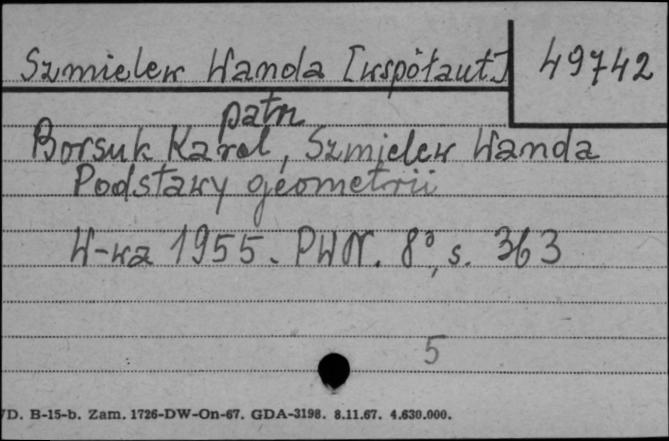 Szmielew Wanda [współaut.] 49742
patrz
Borsuk Karol, Szmielew Wanda
Podstawy geometrii
W-wa 1955. PWN. 8°, s. 363
5
D. B-15-b. Zam. 1726-DW-On-67. GDA-3198. 8.11.67. 4.630.000.